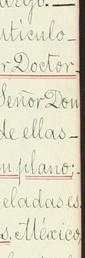 largo.—
rtículo—
r Doctor—
Señor Don
de ellas—
n plano;
eladas es
s. México,